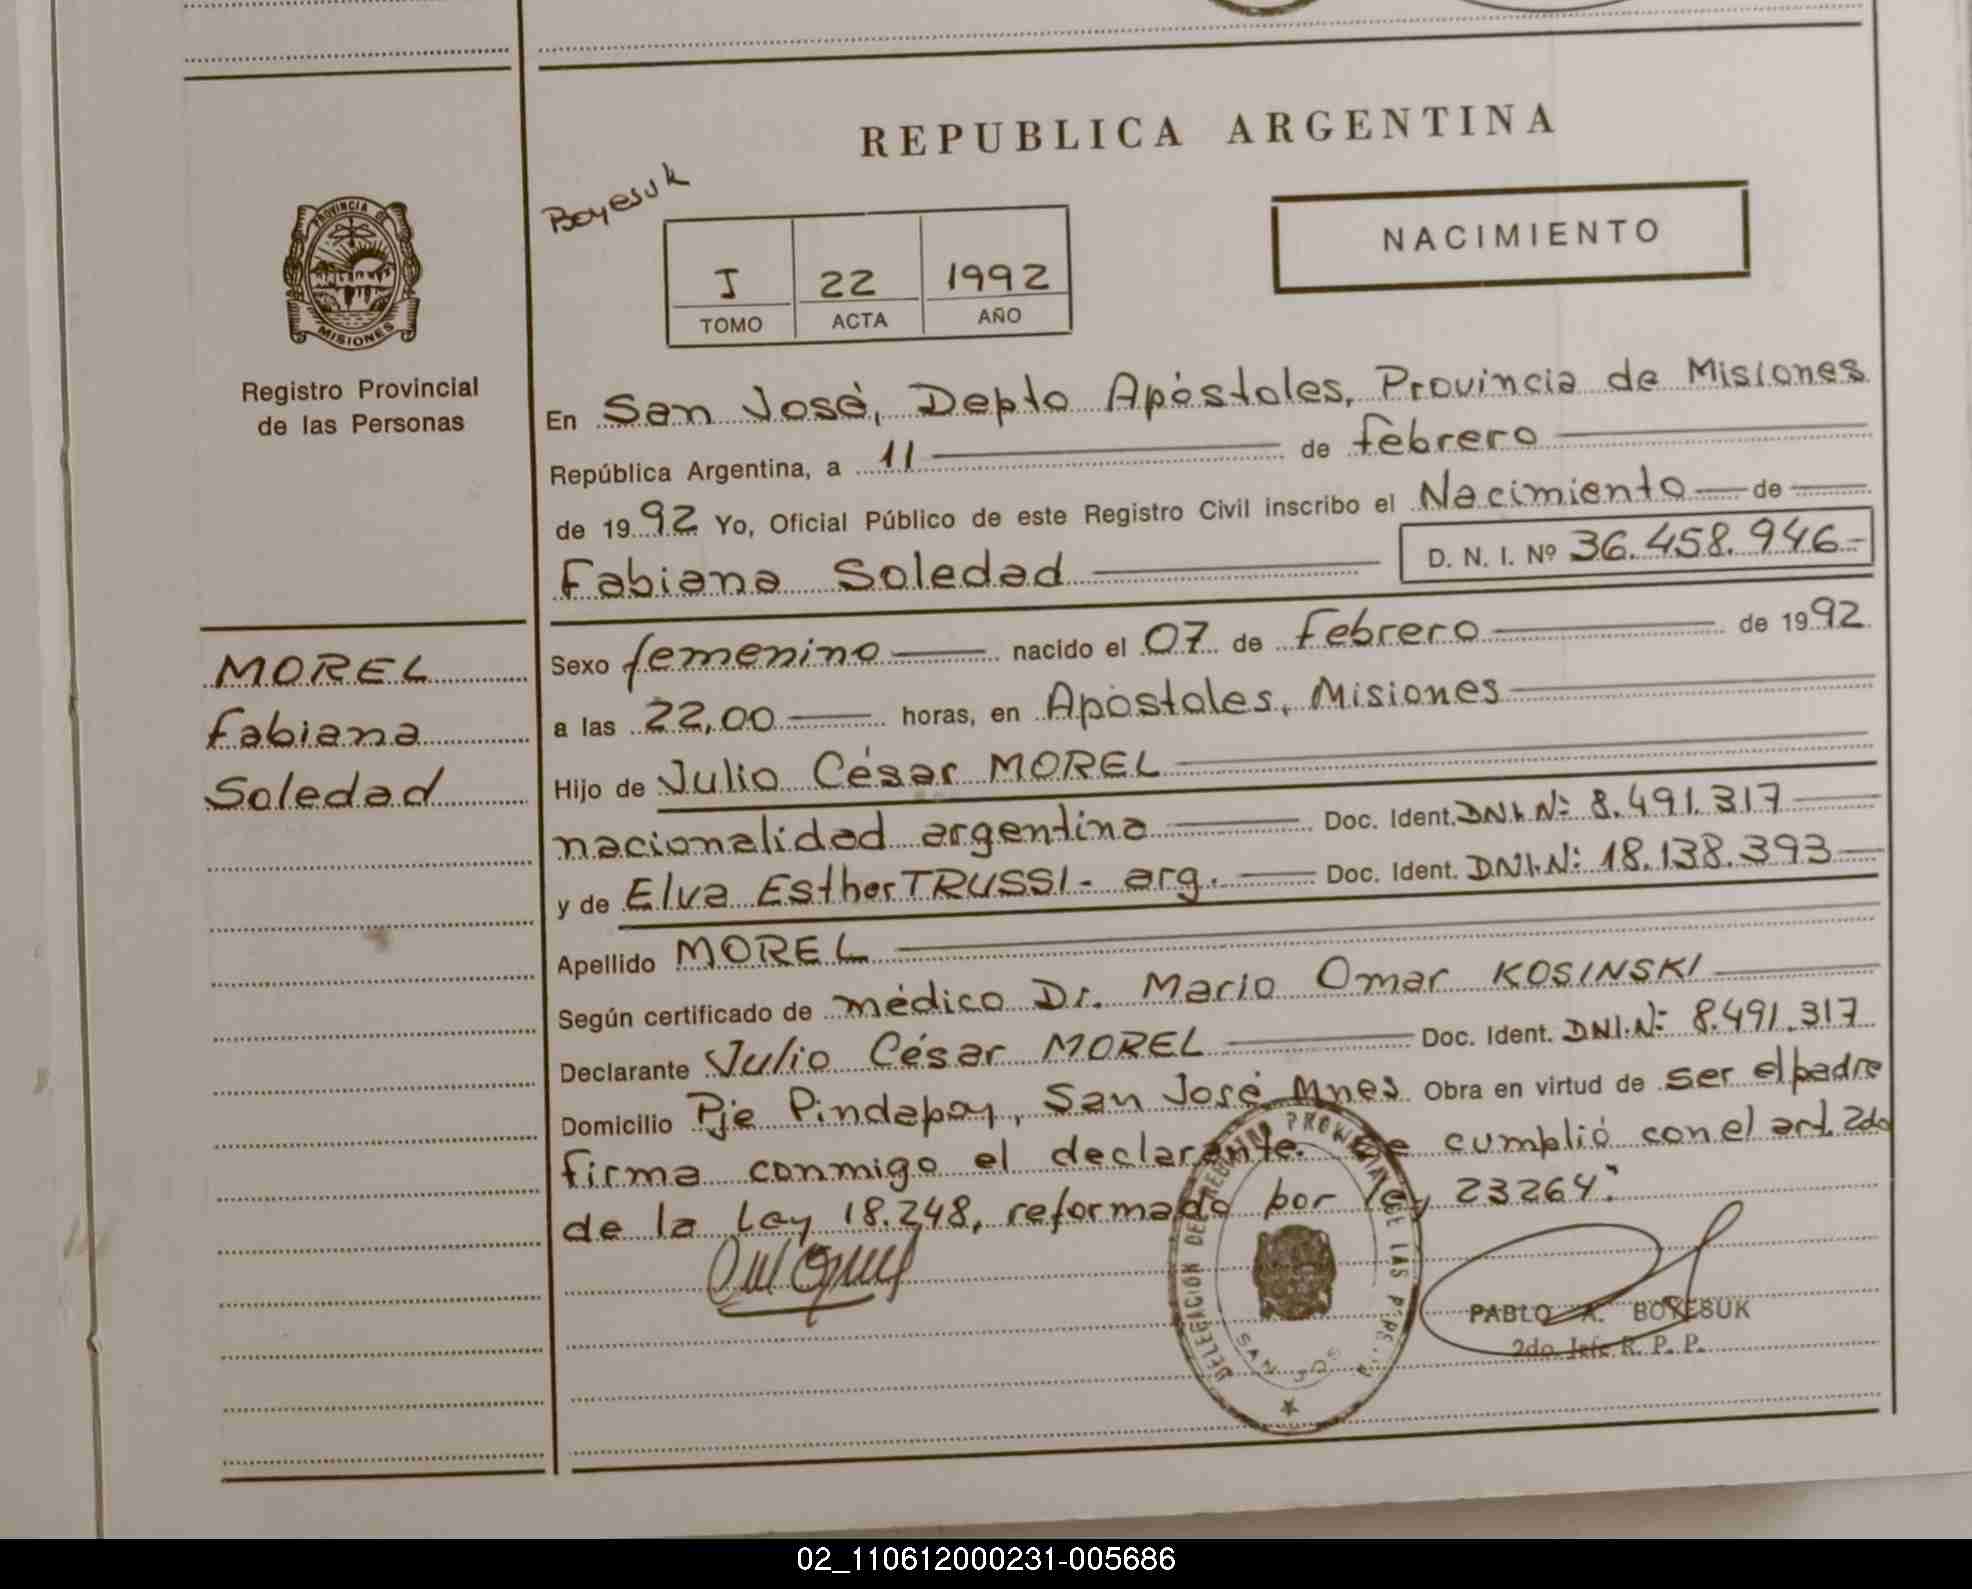 REPUBLICA ARGENTINA
Boyesuk
NACIMIENTO
I 22 1992
TOMO ACTA AÑO
PROVINCIA DE
MISIONES
Registro Provincial
de las Personas
En San José, Depto Apóstoles, Provincia de Misiones
República Argentina, a 11 de febrero
de 1992 Yo, Oficial Público de este Registro Civil inscribo el Nacimiento de
Fabiana Soledad D. N. I. Nº 36.458.946-
MOREL
Fabiana
Soledad
Sexo femenino nacido el 07 de Febrero de 1992
a las 22,00 horas, en Apóstoles, Misiones
Hijo de Julio César MOREL
nacionalidad argentina Doc. Ident. DNI. Nº 8.491.317
y de Elva Esther TRUSSI- arg. Doc. Ident. DNI. Nº 18.138.393
Apellido MOREL
Según certificado de médico Dr. Mario Omar KOSINSKI
Declarante Julio César MOREL Doc. Ident. DNI. Nº 8.491.317
Domicilio Pje Pindapoy, San José Mnes Obra en virtud de ser el padre
firma conmigo el declarante. Se cumplió con el art. 2do
de la Ley 18.248, reformado por ley 23264."
DELEGACION DEL REGISTRO PROVINCIAL DE LAS
SAN JOSE
PABLO A. BOYESUK
2do. Jefe R. P. P.
02_110612000231-005686